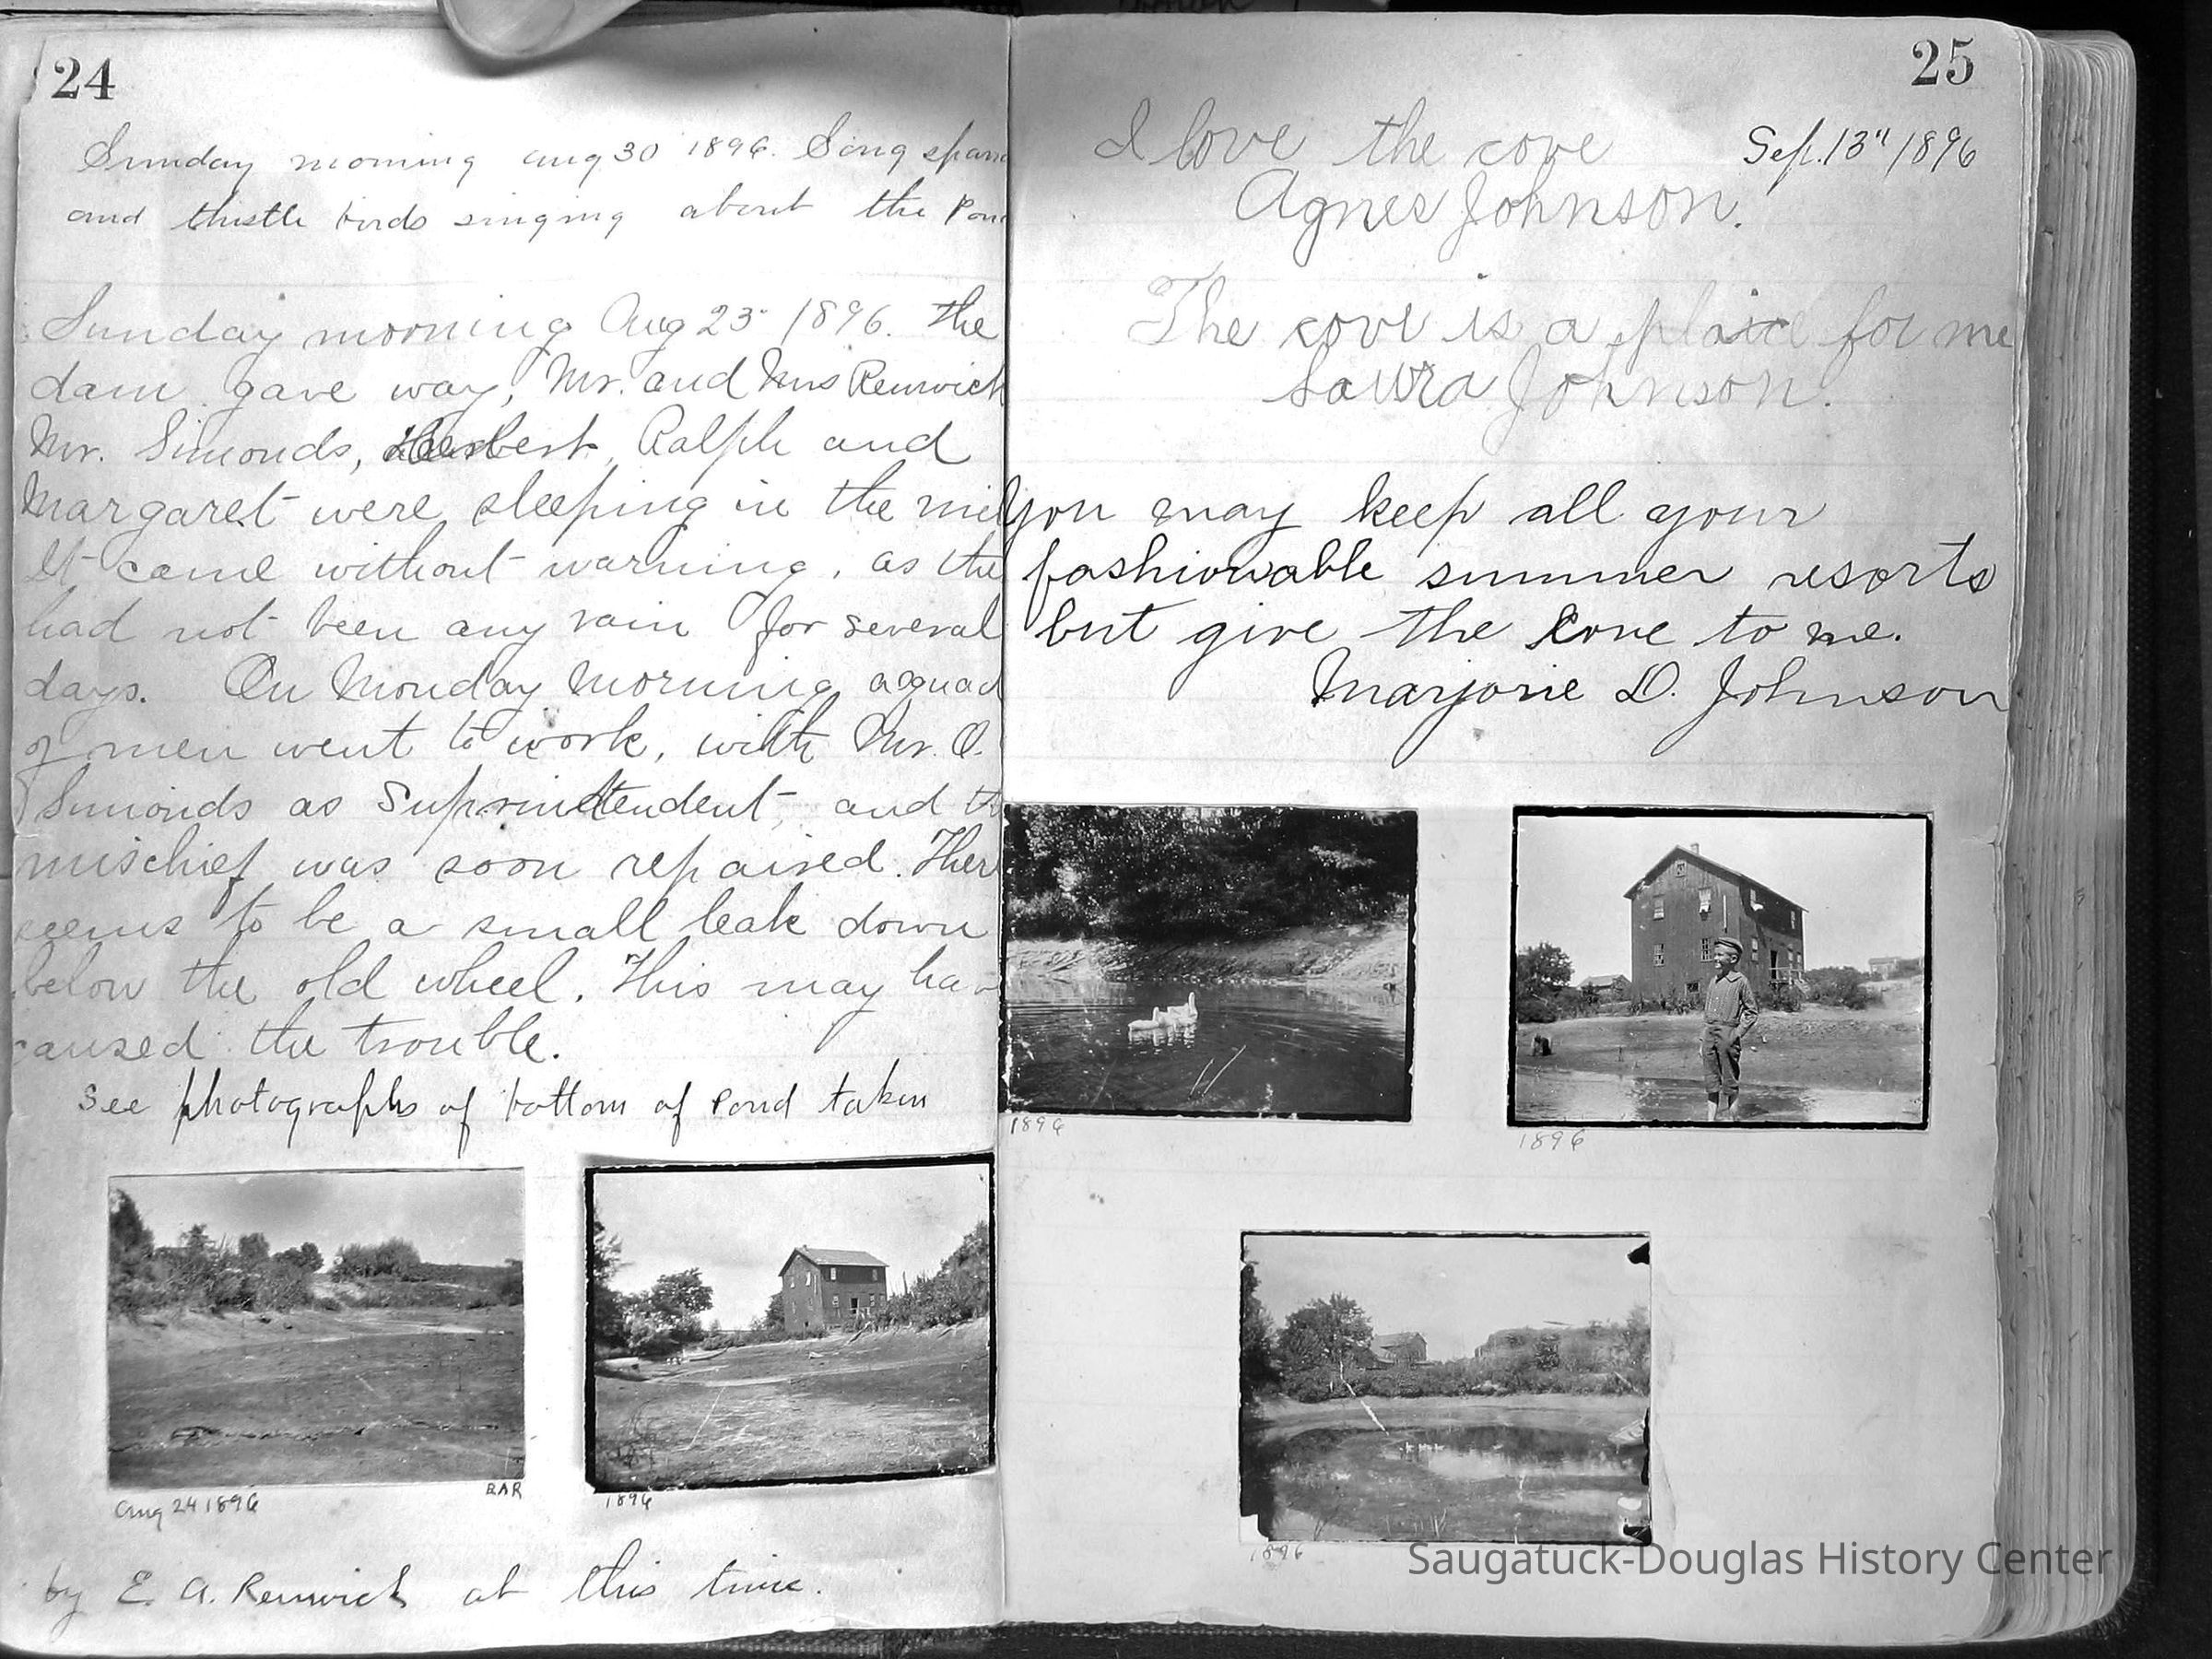 24
Sunday morning aug 30 1896. Song spar
and thistle birds singing about the Pon
Sunday morning Aug 23 1896. The
dam gave way, Mr. and Mrs Renwick
Mr. Simonds, Herbert, Ralph and
Margaret were sleeping in the mil
It came without warning, as the
had not been any rain for several
days. On Monday morning a squad
of men went to work, with Mr. O.
Simonds as Suprintendent, and th
mischief was soon repaired. Ther
seems to be a small leak down
below the old wheel. This may ha
caused the trouble.
See photographs of bottom of Pond taken
Aug 24 1896
EAR
1896
by E. A. Renwick at this time.
25
I love the cove
Sep. 13" 1896
Agnes Johnson.
The cove is a place for me
Laura Johnson.
You may keep all your
fashionable summer resorts
but give the Cove to me.
Marjorie D. Johnson
1896
1896
1896
Saugatuck-Douglas History Center